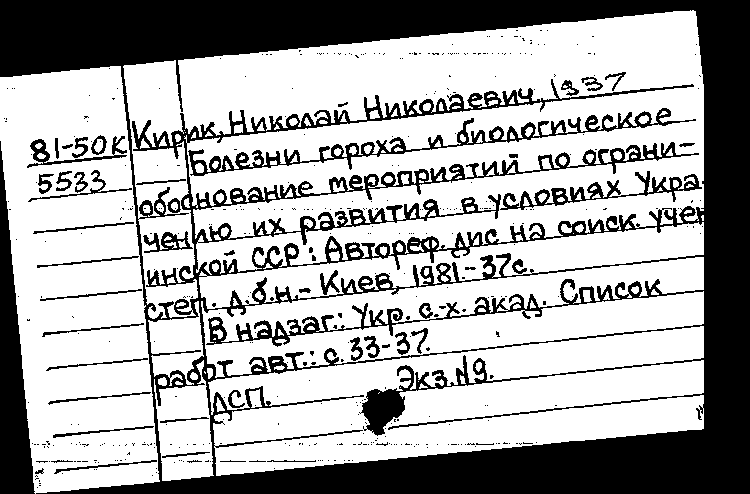 81-50К Кирик, Николай Николаевич, 1937
5533 Болезни гороха и биологическое
обоснование мероприятий по ограни-
чению их развития в условиях Укра
инской ССР: Автореф. дис на соиск. учен
степ. д.б.н.- Киев, 1981.-37с.
В надзаг.: Укр. с.-х. акад. Список
работ авт.: с.33-37.
ДСП. Экз.№9.